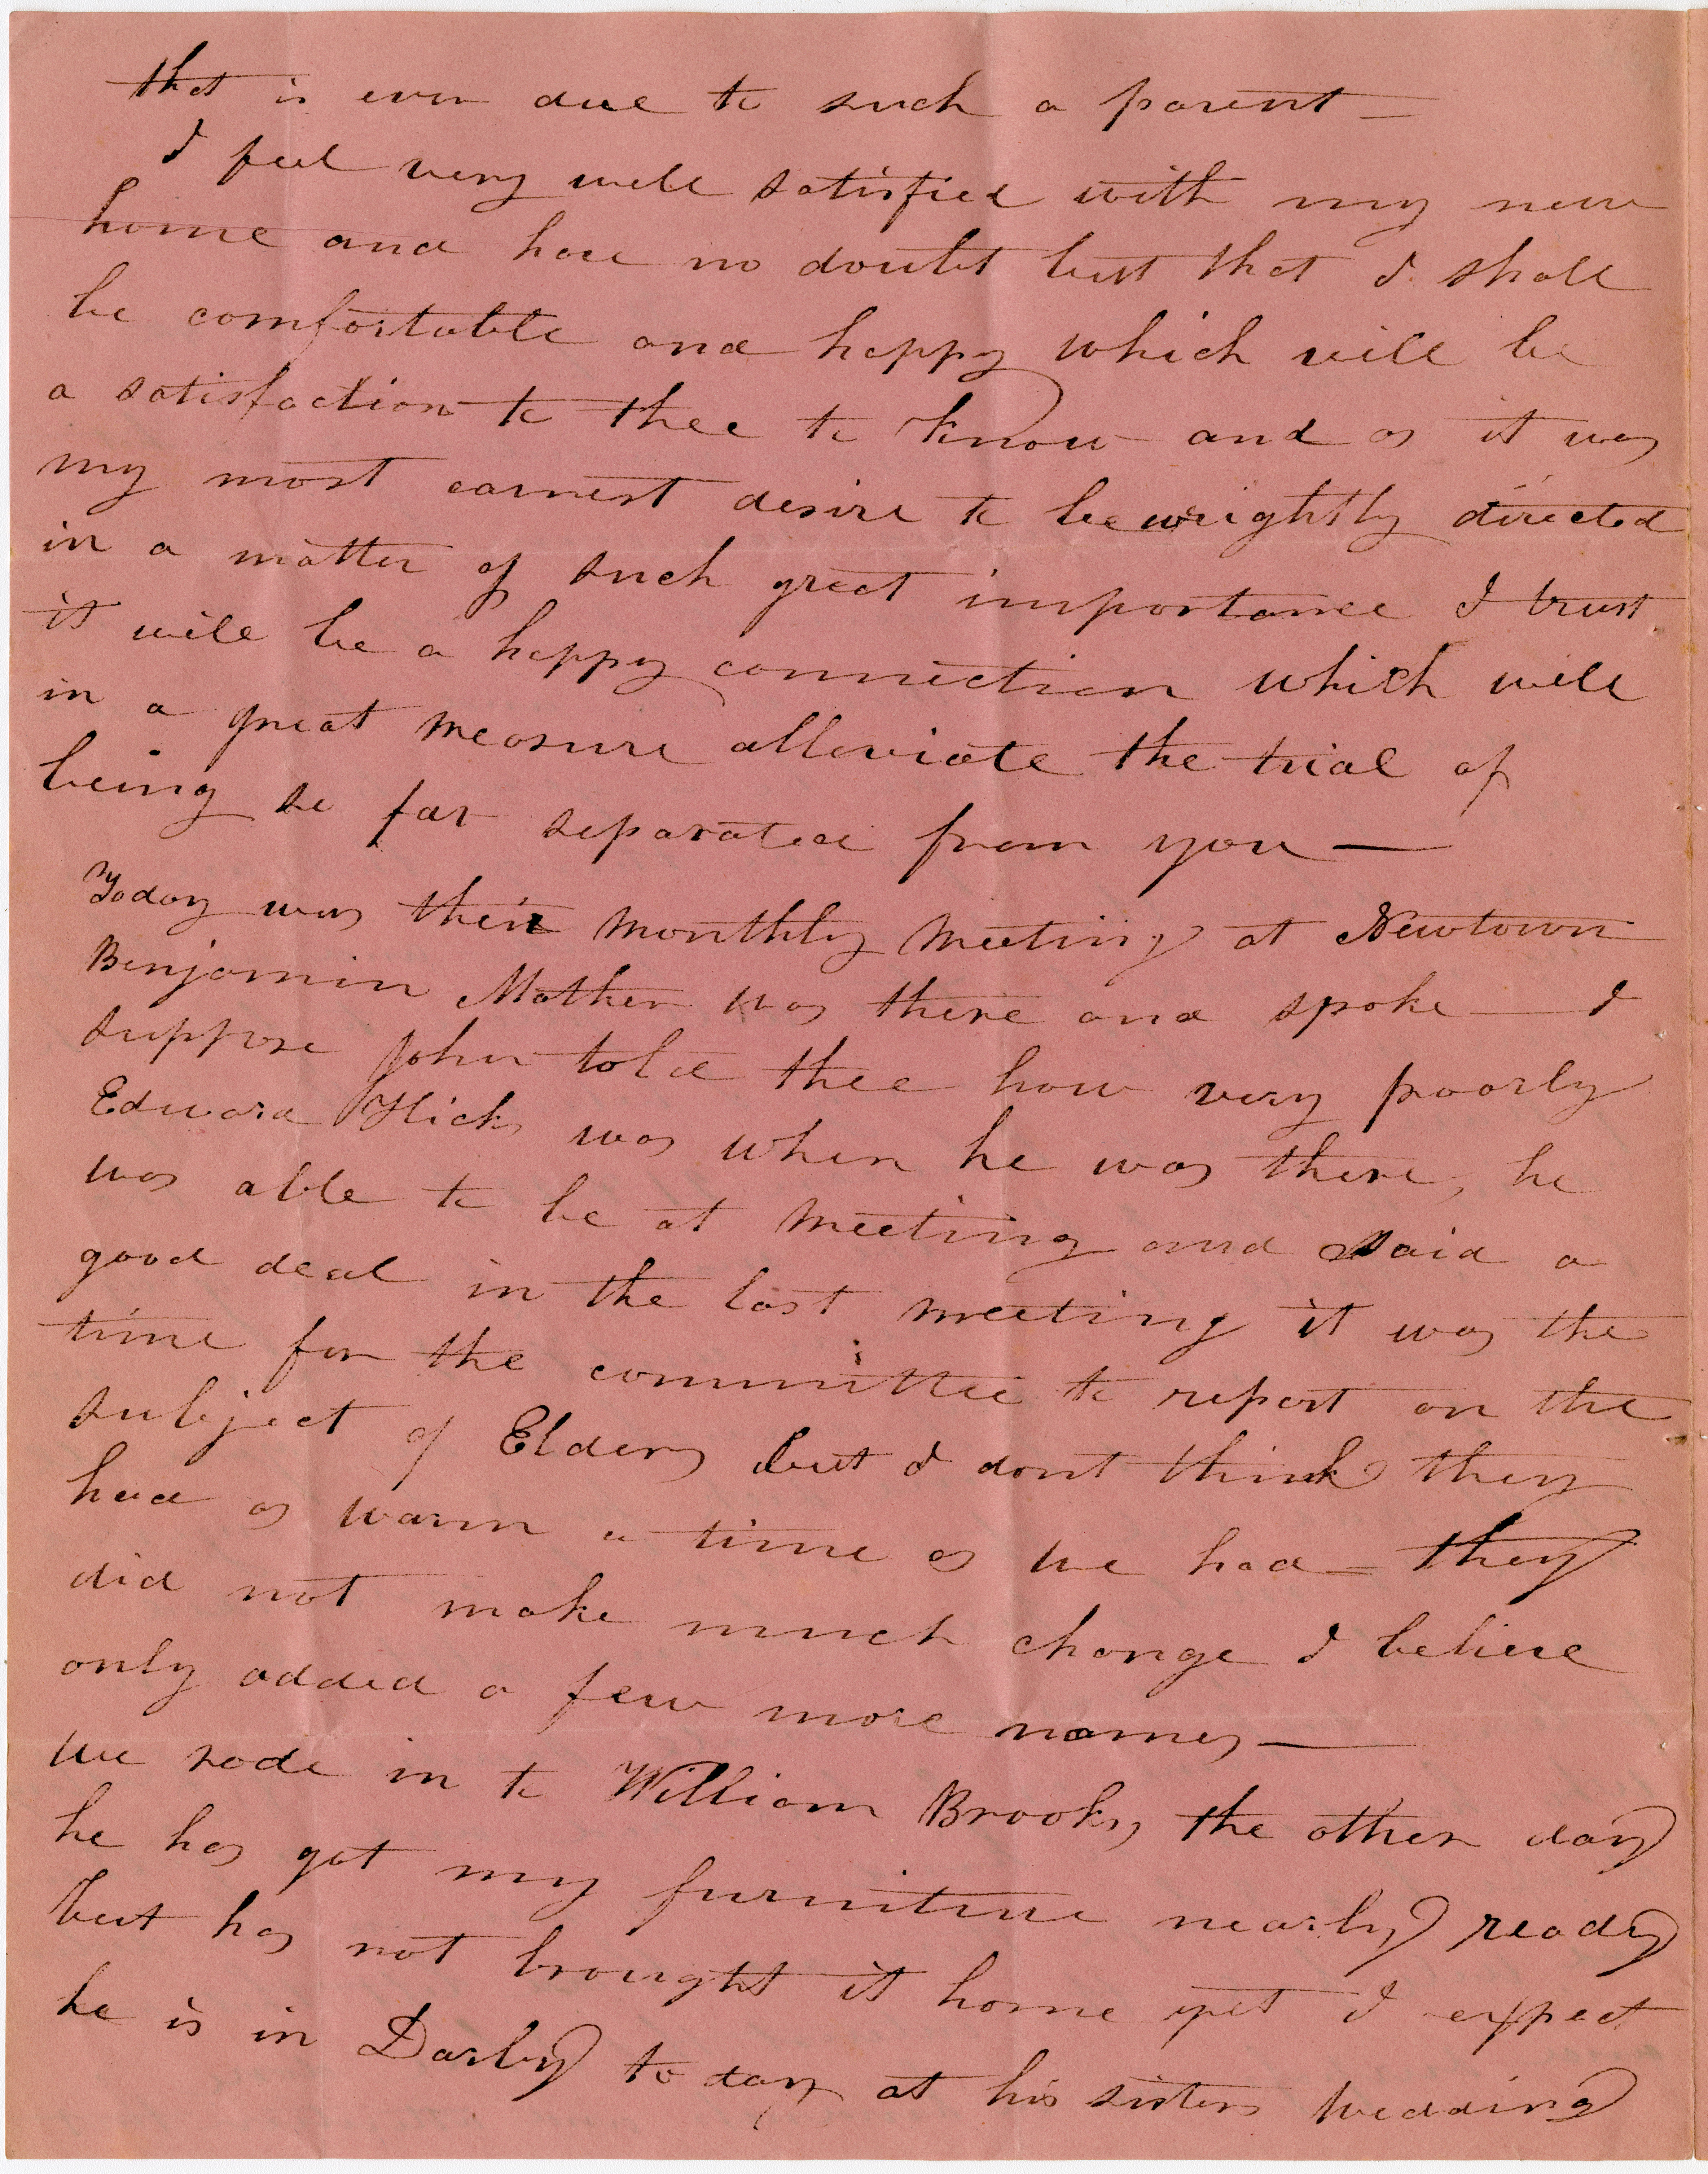 that is ever due to such a parent —
I feel very well satisfied with my new
home and have no doubt but that I shall
be comfortable and happy which will be
a satisfaction to thee to know and as it was
my most earnest desire to be wrightly directed
in a matter of such great importance I trust
it will be a happy connection which will
in a great measure alleviate the trial of
being so far separated from you —
Today was their monthly Meeting at Newtown
Benjamin Mather was there and spoke — I
suppose John told thee how very poorly
Edward Hicks was when he was there, he
was able to be at meeting and said a
good deal in the last meeting it was the
time for the committee to report on the
subject of Elders but I dont think they
had as warm a time as we had = they
did not make much change I believe
only added a few more names —
we rode in to William Brooks, the other day
he has got my furniture nearly ready
but has not brought it home yet I expect
he is in Darby to day at his sisters wedding